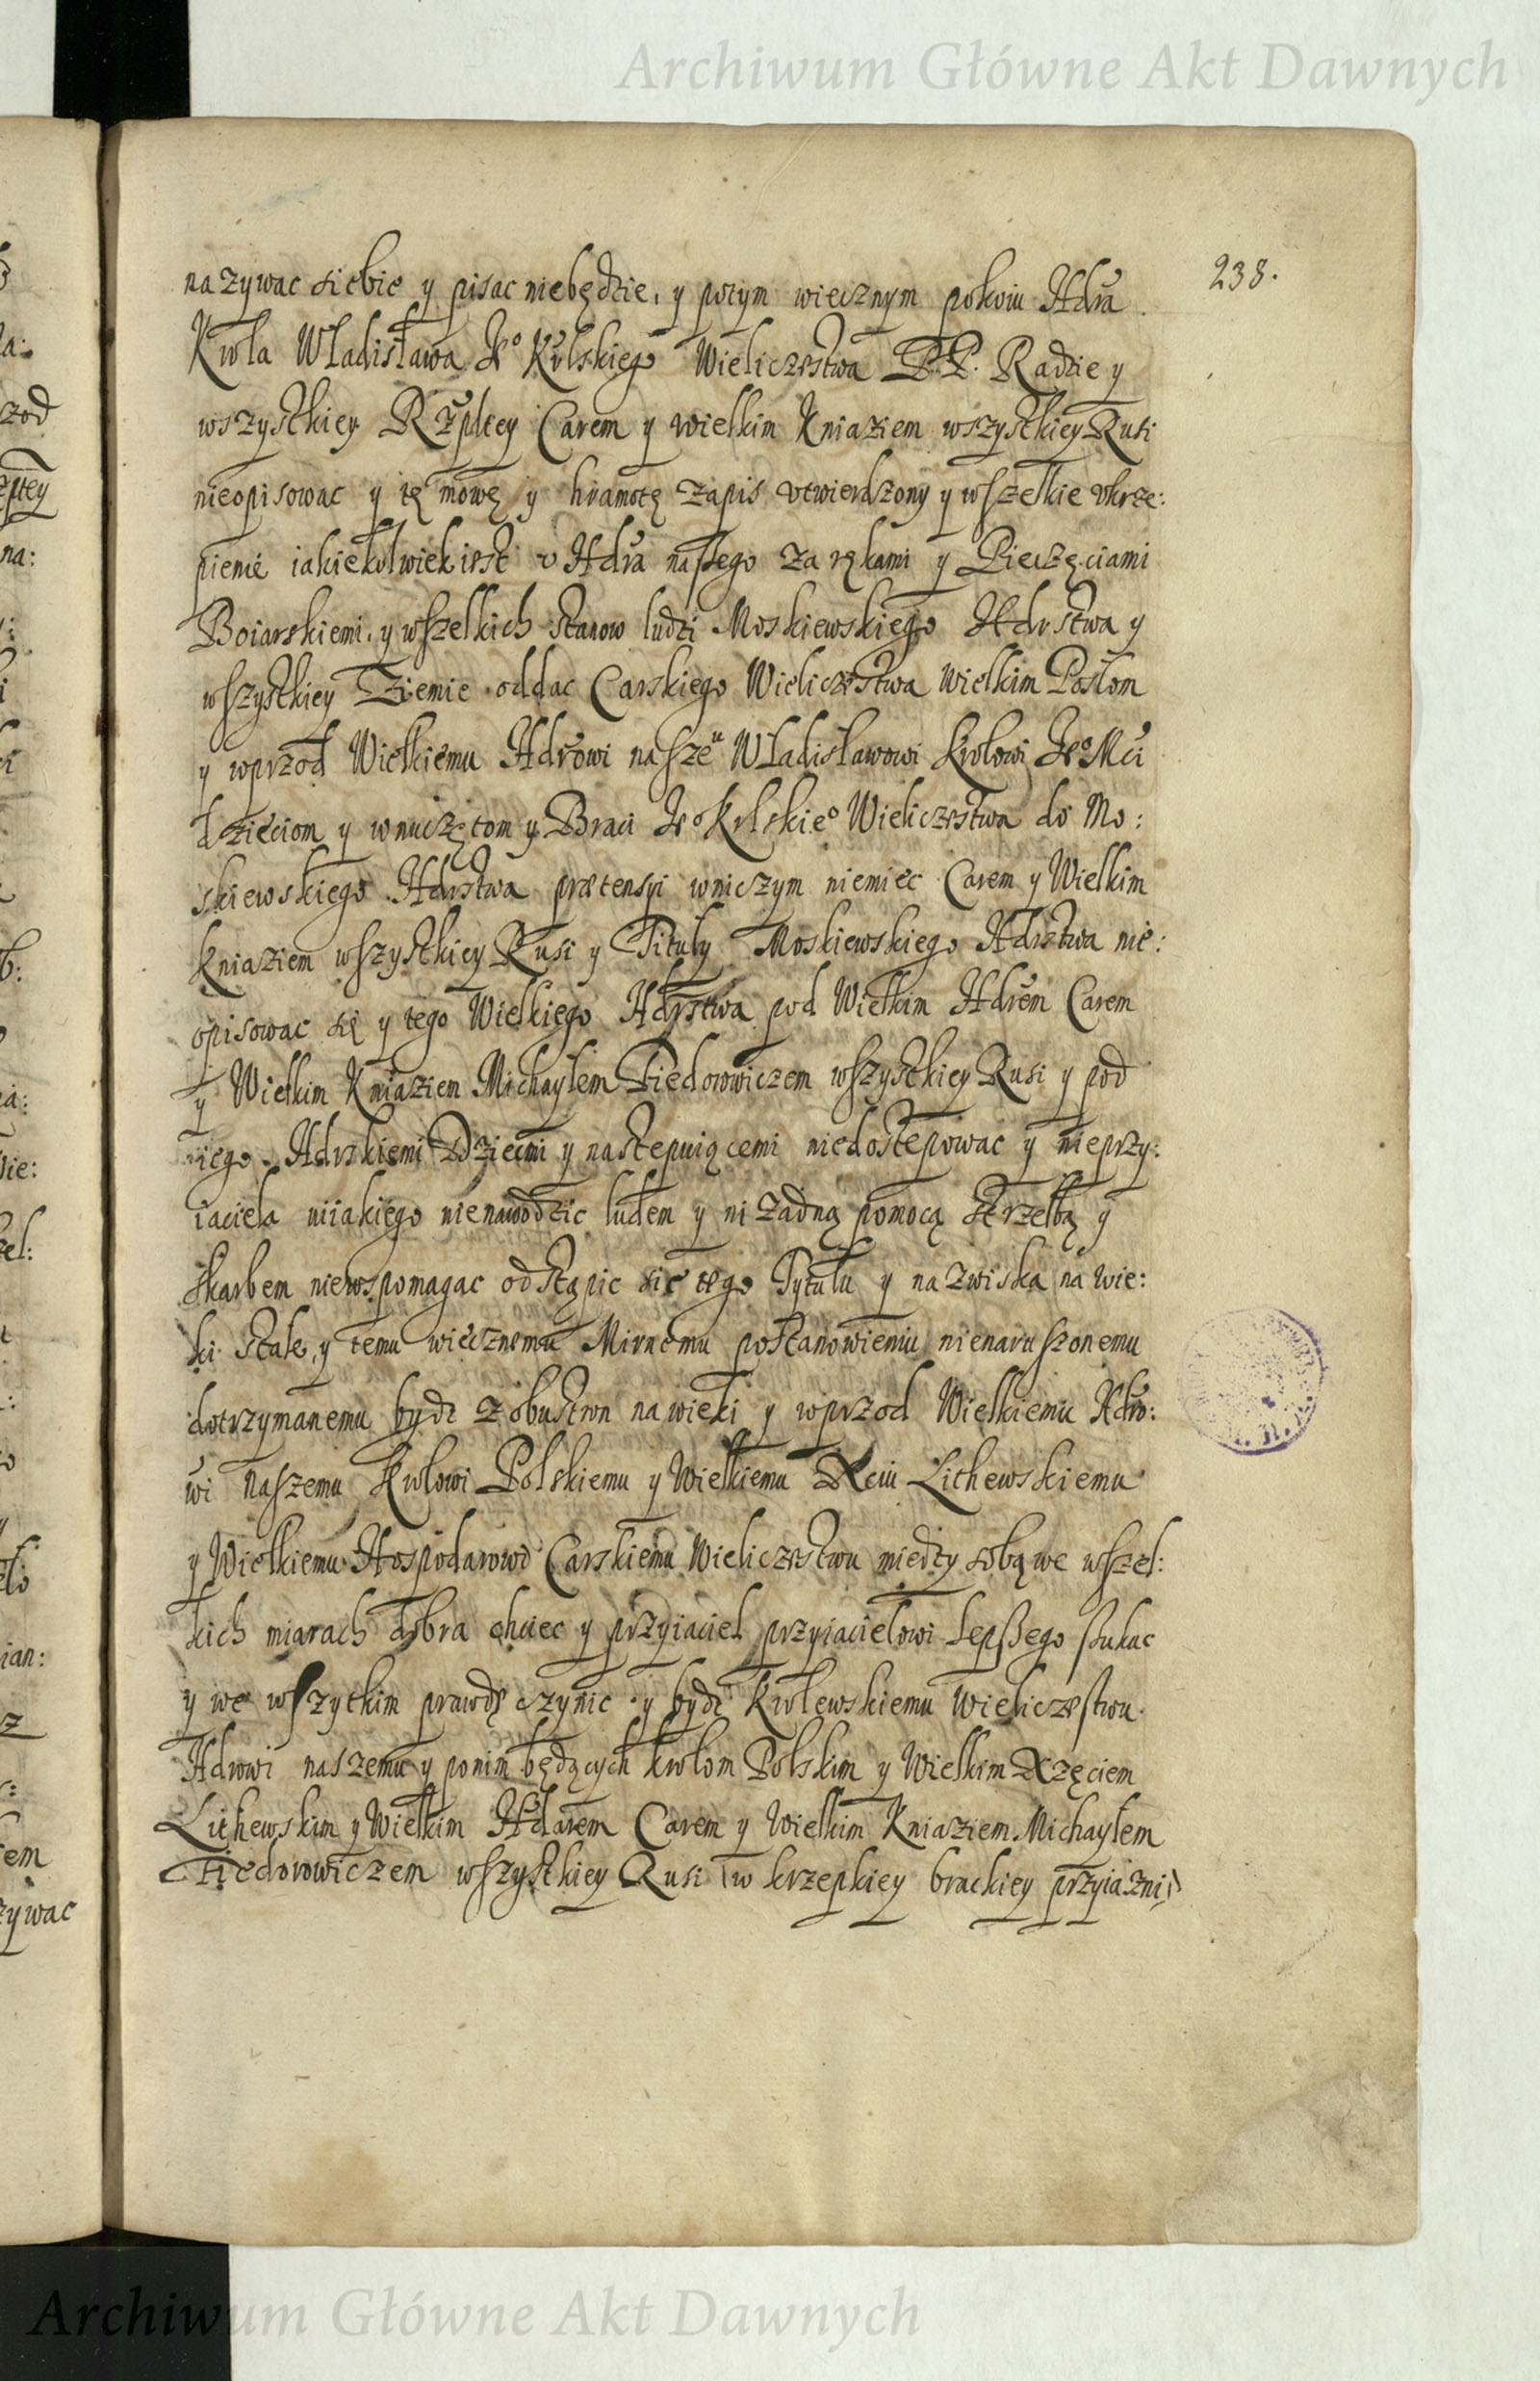 Archiwum Główne Akt Dawnych
238.
nazywac siebie y pisac niebędzie, y potym wiecznym pokoiu Hdra
Krola Władisława Je° Krlskiego Wieliczestwa P.P. Radzie y
wszystkiey Rzpltey Carem y wielkim Kniaziem wszystkiey Rusi
nieopisowac y tę mowę y hramotę zapis vtwierdzony y wszelkie vkrze:
pienie iakiekolwiek iest v Hdra naszego za rękami y Pieczęciami
Boiarskiemi, y wszelkich stanow ludzi Moskiewskiego Hdrstwa y
wszystkiey Ziemie oddac Carskiego Wieliczestwa Wielkim Posłom
y wprzod Wielkiemu Hdrowi nasze͏ᵘ Władisławowi Krolowi Je° Mci
dzieciom y wnuczętom y Braci Je° Krlskie° Wieliczestwa do Mo:
skiewskiego Hdrstwa prætensyi wniczym niemiec Carem y Wielkim
Kniaziem wszystkiey Rusi y Tituły Moskiewskiego Hdrstwa nie:
opisowac się y tego Wielkiego Hdrstwa pod Wielkim Hdrem Carem
y Wielkim Kniaziem Michayłem Fiedorowiczem wszystkiey Rusi y pod
iego Hdrskiemi Dziecmi y nastepuiącemi niedostepowac y nieprzy:
iaciela niiakiego nienawodzic ludem y ni żadną pomocą strzelbą y
skarbem niewspomagac odstąpic się tego Tytułu y nazwiska na wie:
ki stałe, y temu wiecznemu Mirnemu postanowieniu nienaruszonemu
dotrzymanemu bydz z obustron na wieki y wprzod Wielkiemu Hdro:
wi naszemu Krolowi Polskiemu y Wielkiemu Xciu Lithewskiemu
y Wielkiemu Hospodarowi Carskiemu Wieliczestwu miedzy sobą we wszel:
kich miarach dobra chciec y przyiaciel przyiacielowi lepszego szukac
y we wszytkim prawdę czynic y bydz Krolewskiemu Wieliczestwu
Hdrowi naszemu y ponim będących krolom Polskim y Wielkim Xzęciem
Lithewskim y Wielkim Hdarem Carem y Wielkim Kniaziem Michayłem
Fiedorowiczem wszystkiey Rusi w krzepkiey brackiey przyiazni
Archiwum Główne Akt Dawnych